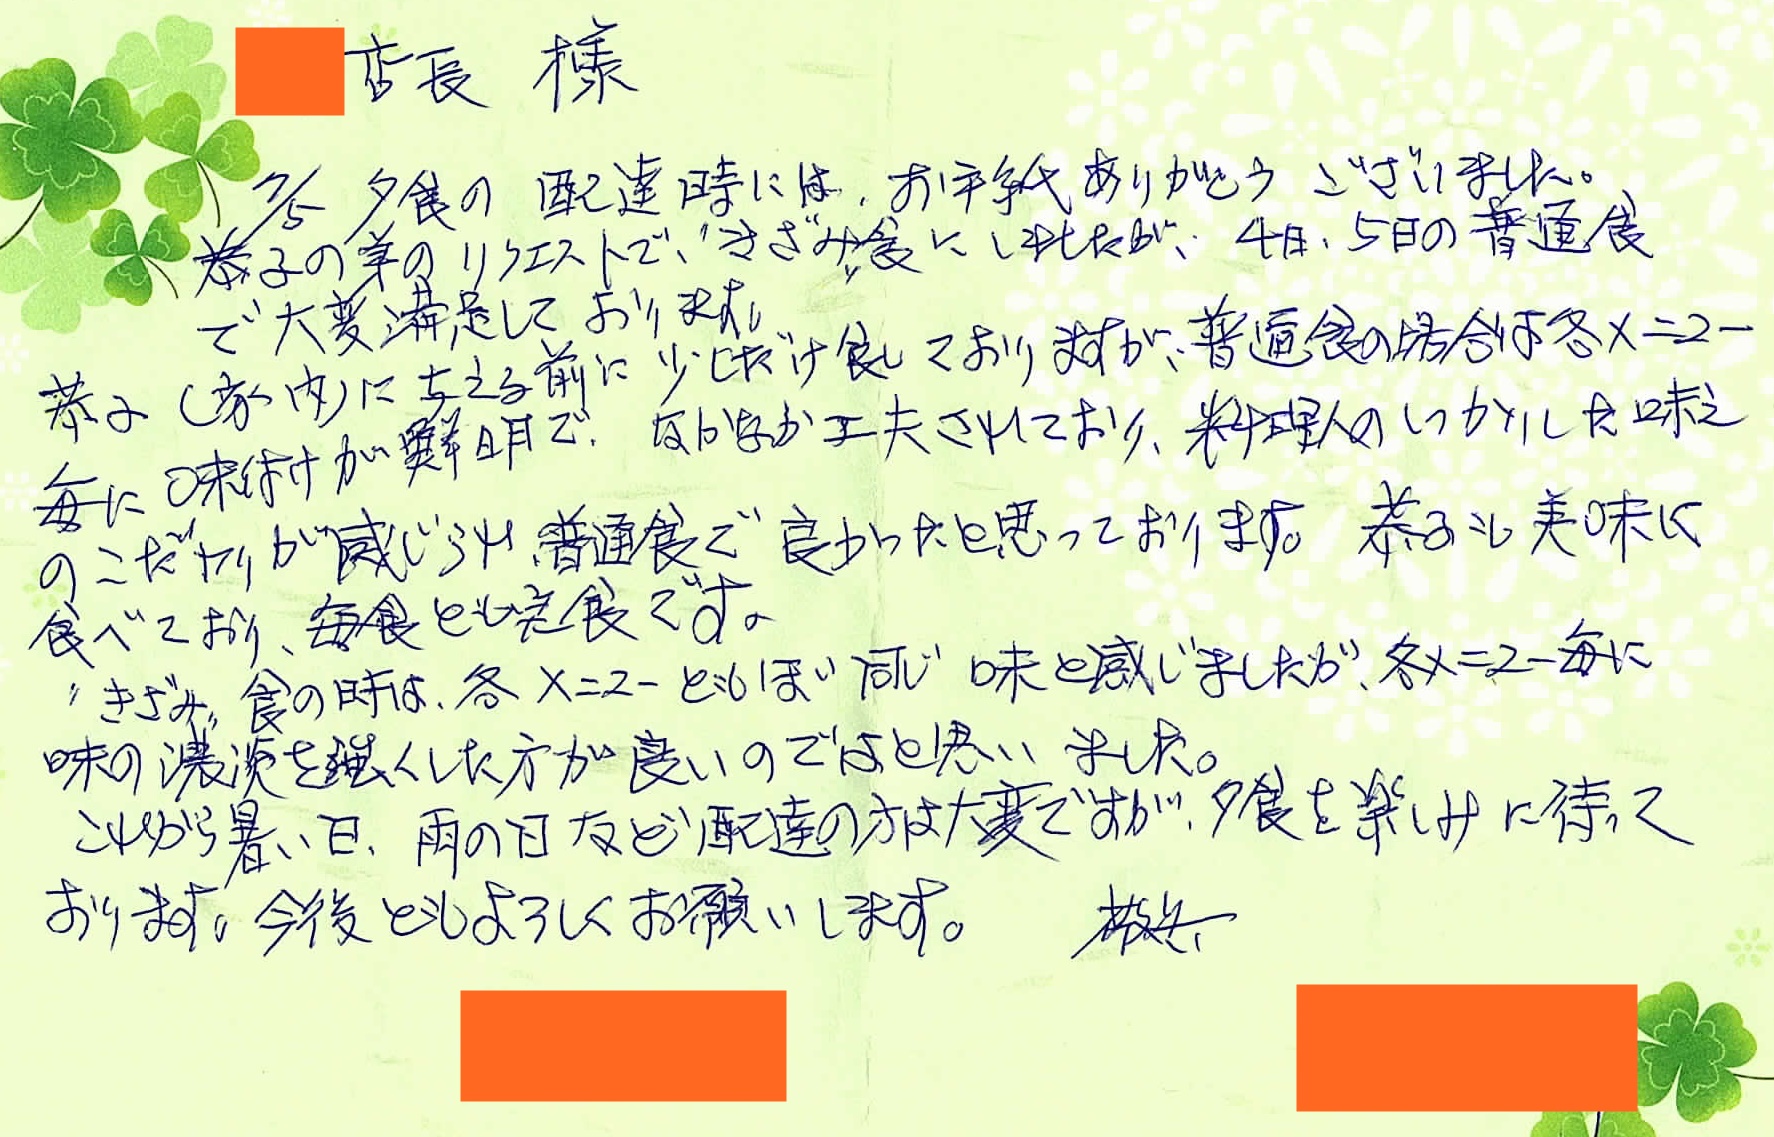 店長 様
7/5 夕食の 配達時には、お手紙ありがとう ございました。
恭子の弟のリクエストで、"きざみ"食にしましたが、4日、5日の普通食
で大変満足して おります。
恭子(家内)に与える前に 少しだけ食しておりますが、普通食の場合は各メニュー
毎に 味付けが鮮明で、なかなか工夫されており、料理人のしっかりした味え
のこだわりが感じられ、普通食で良かったと思っております。 恭子も美味に
食べており、毎食とも完食です。
"きざみ"食の時は、各メニューともほゞ同じ 味と感じましたが、各メニュー毎に
味の濃淡を強くした方が良いのではと思いました。
これから暑い日、雨の日など配達の方は大変ですが、夕食を楽しみに待って
おります。今後ともよろしくお願いします。 敬具